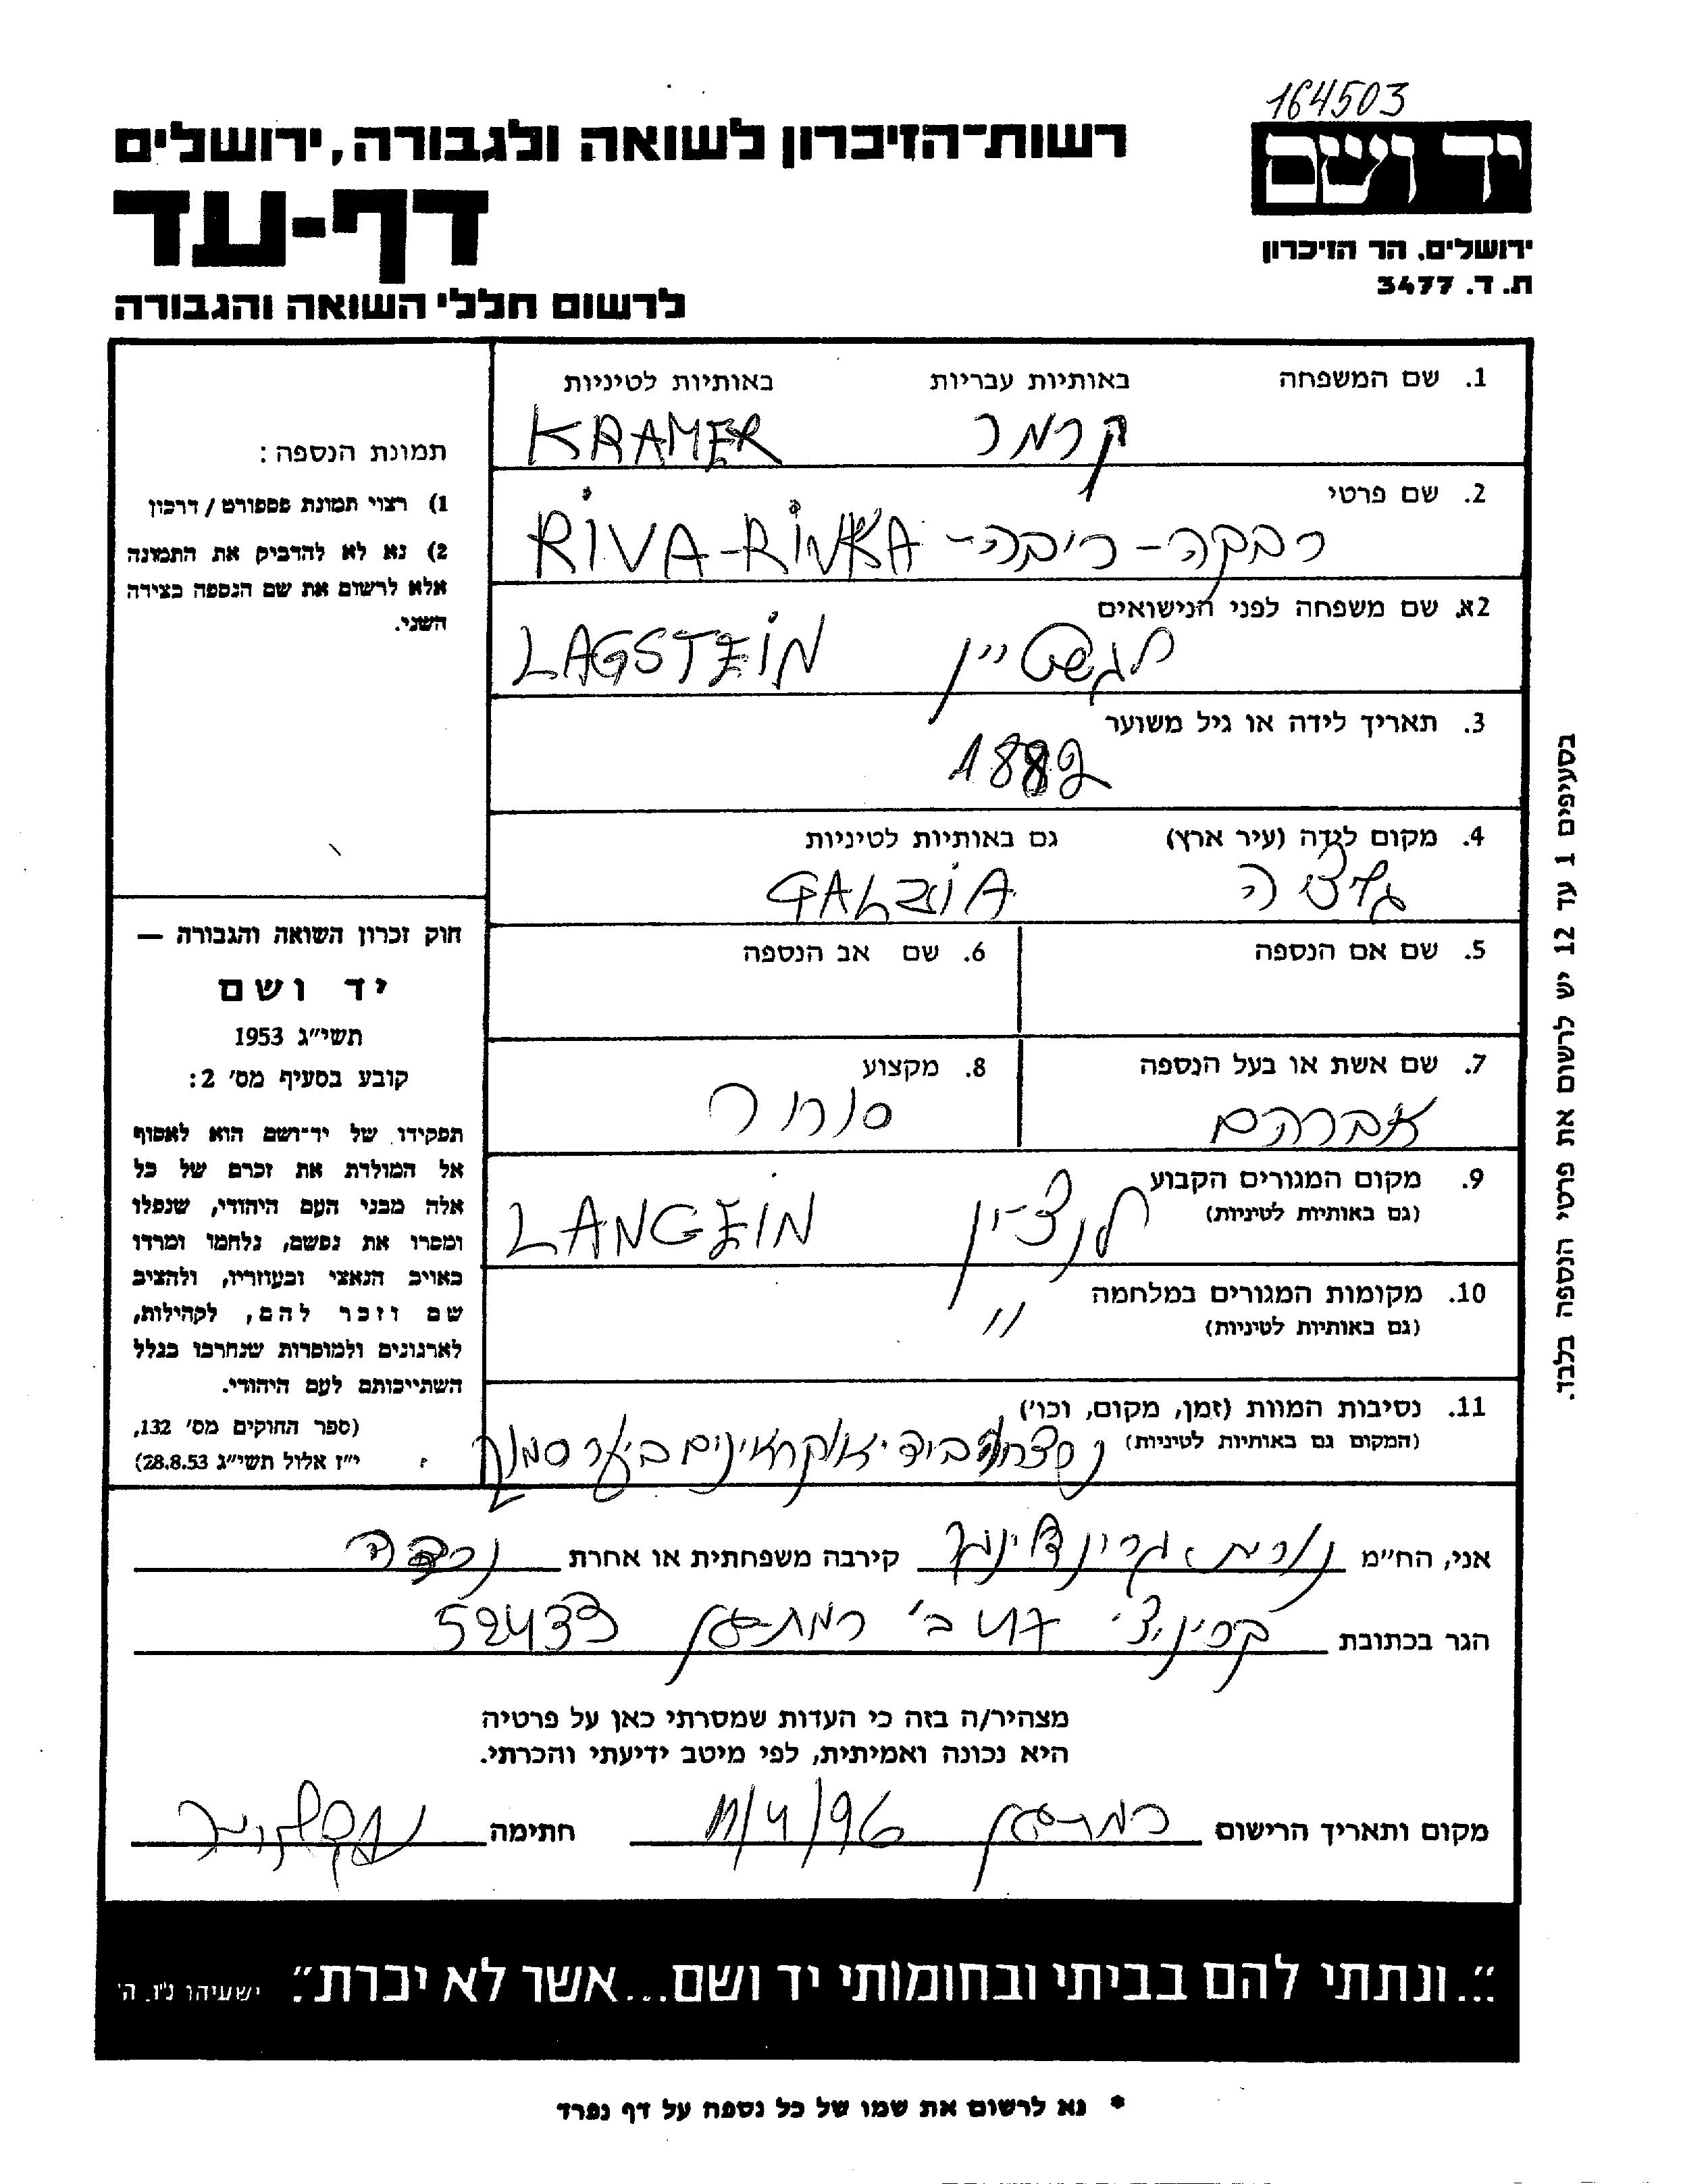 164503
יד ושם
ירושלים. הר הזיכרון
ת. ד. 3477
רשות-הזיכרון לשואה ולגבורה, ירושלים
דף-עד
לרשום חללי השואה והגבורה
1. שם המשפחה באותיות עבריות באותיות לטיניות
קרמר KRAMER
2. שם פרטי
רבקה-ריבה- RIVA-RIVKA
2א. שם משפחה לפני הנישואים
לגשטיין LAGSTEIN
3. תאריך לידה או גיל משוער
1882
4. מקום לידה (עיר ארץ) גם באותיות לטיניות
גליציה GALZIA
5. שם אם הנספה 6. שם אב הנספה
7. שם אשת או בעל הנספה 8. מקצוע
אברהם סוחר
9. מקום המגורים הקבוע
(גם באותיות לטיניות)
לנצ'ין LANGEIN
10. מקומות המגורים במלחמה
(גם באותיות לטיניות)
"
11. נסיבות המוות (זמן, מקום, וכו')
(המקום גם באותיות לטיניות)
נרצחה בידי אוקראינים ביער סמוך
תמונת הנספה:
1) רצוי תמונת פספורט / דרכון
2) נא לא להדביק את התמונה
אלא לרשום את שם הנספה בצידה
השני.
חוק זכרון השואה והגבורה —
יד ושם
תשי"ג 1953
קובע בסעיף מס' 2:
תפקידו של יד-ושם הוא לאסוף
אל המולדת את זכרם של כל
אלה מבני העם היהודי, שנפלו
ומסרו את נפשם, נלחמו ומרדו
באויב הנאצי ובעוזריו, ולהציב
שם וזכר להם, לקהילות,
לארגונים ולמוסדות שנחרבו בגלל
השתייכותם לעם היהודי.
(ספר החוקים מס' 132,
י"ז אלול תשי"ג 28.8.53)
בסעיפים 1 עד 12 יש לרשום את פרטי הנספה בלבד.
אני, הח"מ נורית קירבה משפחתית או אחרת נכדה
הגר בכתובת קריניצי ב' רמת-גן 52433
מצהיר/ה בזה כי העדות שמסרתי כאן על פרטיה
היא נכונה ואמיתית, לפי מיטב ידיעתי והכרתי.
מקום ותאריך הרישום רמת-גן 11/4/96 חתימה
"...ונתתי להם בביתי ובחומותי יד ושם...אשר לא יכרת". ישעיהו נ"ו. ה'
* נא לרשום את שמו של כל נספה על דף נפרד